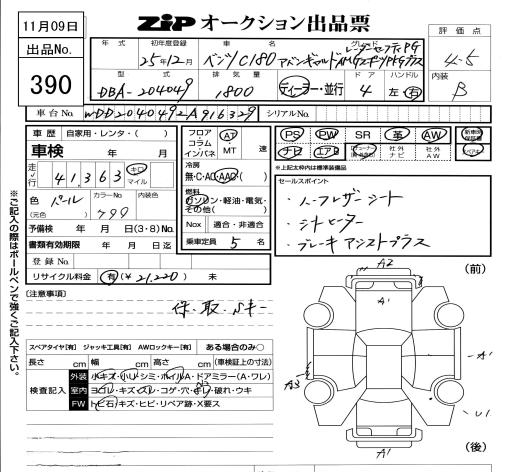 11月09日
ZIP オークション出品票
評価点
4-5
出品No.
390
年式 初年度登録 車名 グレード
25年12月 ベンツC180 アバンギャルド レーダーセーフティPG AMGスポーツPKGプラス
型式 排気量 ドア ハンドル
DBA-204049 1800 ディーラー・並行 4 左・右
内装
B
車台No. WDD2040492A916329 シリアルNo.
車歴 自家用・レンタ・( )
車検 年 月
走行 41,363 キロ マイル
色 パール カラーNo. 799 内装色
(元色)
予備検 年 月 日(3・8)No.
書類有効期限 年 月 日迄
登録No.
リサイクル料金 有(¥21,220) 未
フロア コラム インパネ AT MT 速
冷房
無・C・AC・AAC( )
燃料
ガソリン・軽油・電気・その他( )
Nox 適合・非適合
乗車定員 5 名
PS PW SR 革 AW 新車時保証書
ナビ エアB チューナー 社外ナビ 社外AW
*上記太枠内は標準装備品
セールスポイント
・ハーフレザーシート
・シートヒーター
・ブレーキアシストプラス
[注意事項]
保・取・Sキー
スペアタイヤ[有] ジャッキ工具[有] AWロックキー[有] ある場合のみ○
長さ cm 幅 cm 高さ cm (車検証上の寸法)
検査記入
外装 小キズ・小U・シミ・ホイルA・ドアミラー(A・ワレ)
室内 ヨゴレ・キズ・スレ・コゲ・穴・破れ・ウキ
FW トビ石・キズ・ヒビ・リペア跡・X要ス
※ご記入の際はボールペンで強くご記入下さい。
(前)
A2
A1
A1
A3
U1
A1
(後)